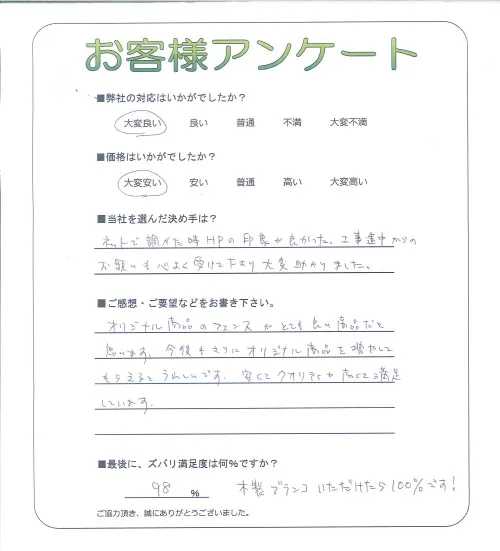 お客様アンケート
■弊社の対応はいかがでしたか？
大変良い 良い 普通 不満 大変不満
■価格はいかがでしたか？
大変安い 安い 普通 高い 大変高い
■当社を選んだ決め手は？
ネットで調べた時HPの印象が良かった。工事途中からの
お願いも心よく受けて下さり大変助かりました。
■ご感想・ご要望などをお書き下さい。
オリジナル商品のフェンスがとても良い商品だと
思います。今後もさらにオリジナル商品を増やして
もらえるとうれしいです。安くてクオリティも高くて満足
しています。
■最後に、ズバリ満足度は何%ですか？
98 % 木製ブランコいただけたら100%です!
ご協力頂き、誠にありがとうございました。